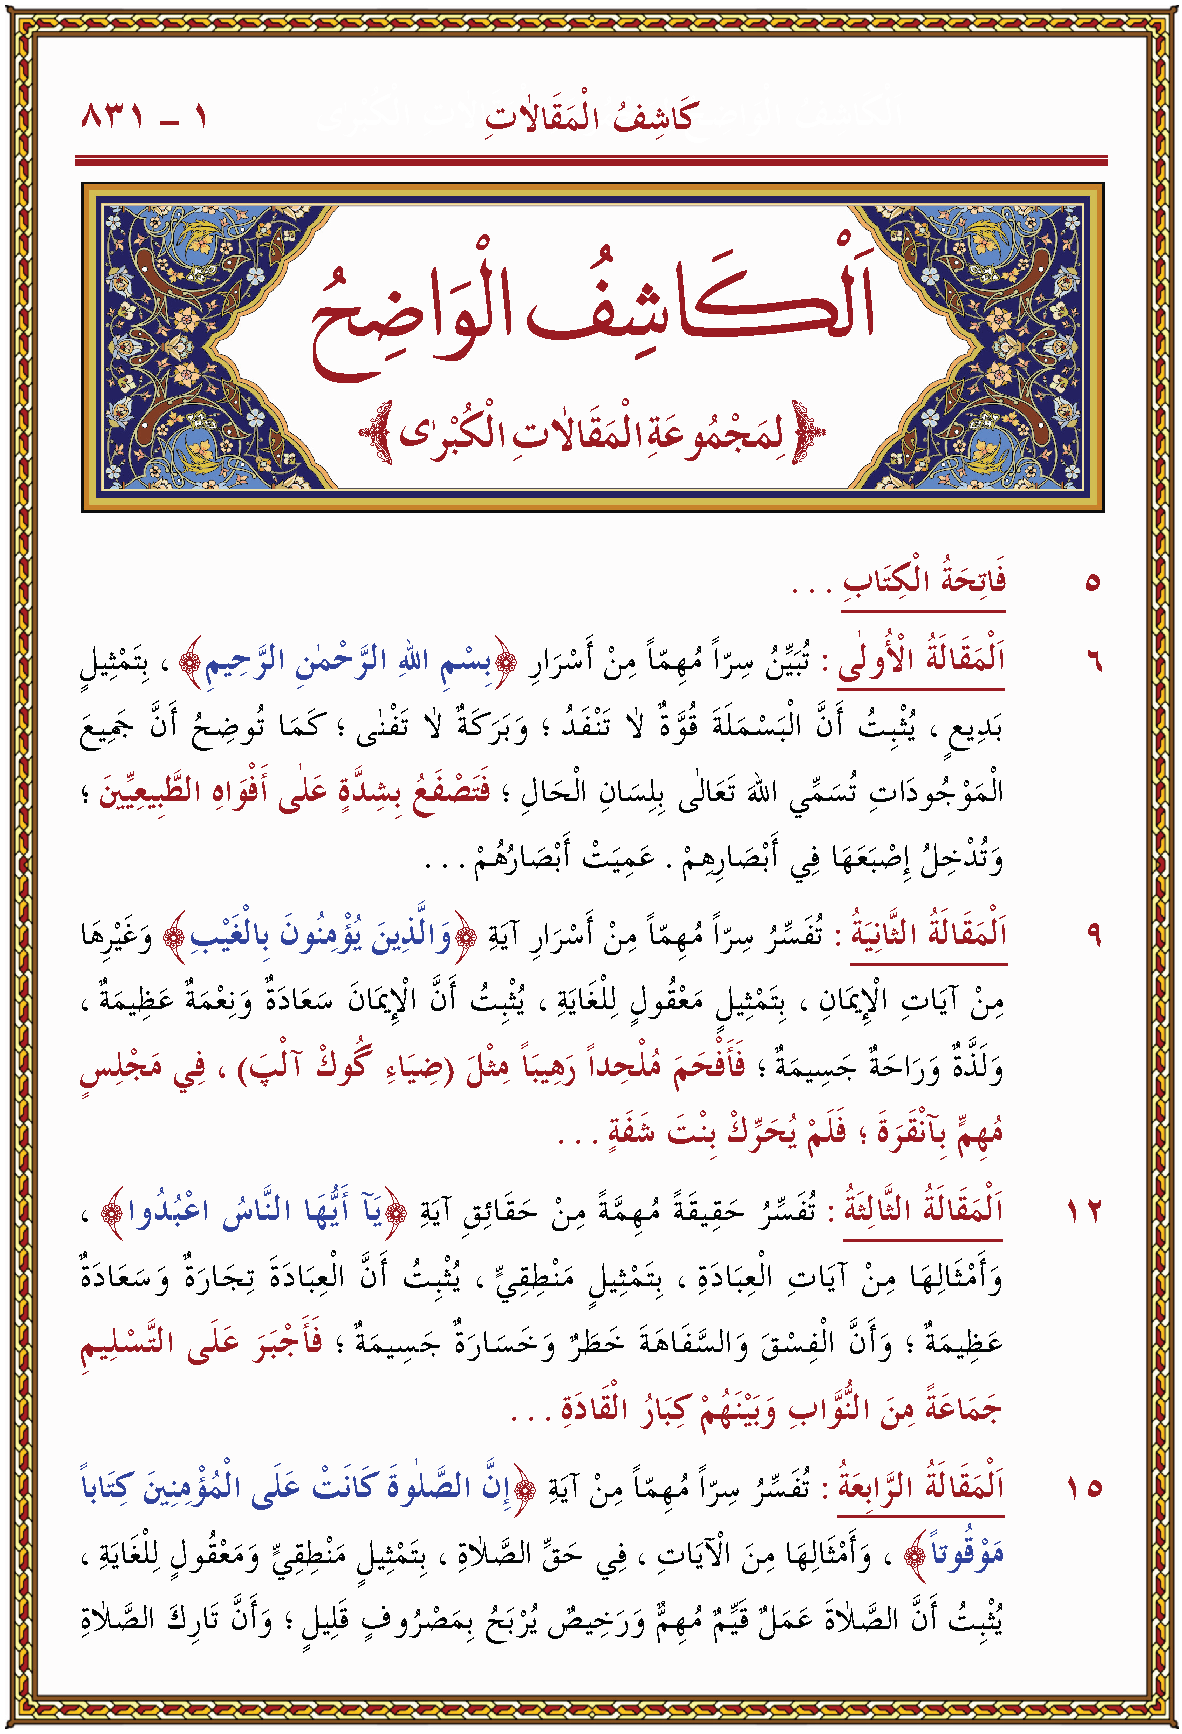 كَاشِفُ الْمَقَالاٰتِ ١ – ٨٣١
اَلْكَاشِفُ الْوَاضِحُ
﴿لِمَجْمُوعَةِ الْمَقَالاٰتِ الْكُبْرٰى﴾
٥ فَاتِحَةُ الْكِتَابِ . . .
٦ اَلْمَقَالَةُ الْأُولٰى : تُبَيِّنُ سِرّاً مُهِمّاً مِنْ أَسْرَارِ ﴿بِسْمِ اللهِ الرَّحْمٰنِ الرَّحِيمِ﴾ ، بِتَمْثِيلٍ
بَدِيعٍ ، يُثْبِتُ أَنَّ الْبَسْمَلَةَ قُوَّةٌ لاَ تَنْفَدُ ؛ وَبَرَكَةٌ لاَ تَفْنٰى ؛ كَمَا تُوضِحُ أَنَّ جَمِيعَ
الْمَوْجُودَاتِ تُسَمِّي اللهَ تَعَالٰى بِلِسَانِ الْحَالِ ؛ فَتَصْفَعُ بِشِدَّةٍ عَلٰى أَفْوَاهِ الطَّبِيعِيِّينَ ؛
وَتُدْخِلُ إِصْبَعَهَا فِي أَبْصَارِهِمْ . عَمِيَتْ أَبْصَارُهُمْ . . .
٩ اَلْمَقَالَةُ الثَّانِيَةُ : تُفَسِّرُ سِرّاً مُهِمّاً مِنْ أَسْرَارِ آيَةِ ﴿وَالَّذِينَ يُؤْمِنُونَ بِالْغَيْبِ﴾ وَغَيْرِهَا
مِنْ آيَاتِ الْإِيمَانِ ، بِتَمْثِيلٍ مَعْقُولٍ لِلْغَايَةِ ، يُثْبِتُ أَنَّ الْإِيمَانَ سَعَادَةٌ وَنِعْمَةٌ عَظِيمَةٌ ،
وَلَذَّةٌ وَرَاحَةٌ جَسِيمَةٌ ؛ فَأَفْحَمَ مُلْحِداً رَهِيباً مِثْلَ (ضِيَاءِ گُوكْ آلْپَ) ، فِي مَجْلِسٍ
مُهِمٍّ بِآنْقَرَةَ ؛ فَلَمْ يُحَرِّكْ بِنْتَ شَفَةٍ . . .
١٢ اَلْمَقَالَةُ الثَّالِثَةُ : تُفَسِّرُ حَقِيقَةً مُهِمَّةً مِنْ حَقَائِقِ آيَةِ ﴿يَآ أَيُّهَا النَّاسُ اعْبُدُوا﴾ ،
وَأَمْثَالِهَا مِنْ آيَاتِ الْعِبَادَةِ ، بِتَمْثِيلٍ مَنْطِقِيٍّ ، يُثْبِتُ أَنَّ الْعِبَادَةَ تِجَارَةٌ وَسَعَادَةٌ
عَظِيمَةٌ ؛ وَأَنَّ الْفِسْقَ وَالسَّفَاهَةَ خَطَرٌ وَخَسَارَةٌ جَسِيمَةٌ ؛ فَأَجْبَرَ عَلَى التَّسْلِيمِ
جَمَاعَةً مِنَ النُّوَّابِ وَبَيْنَهُمْ كِبَارُ الْقَادَةِ . . .
١٥ اَلْمَقَالَةُ الرَّابِعَةُ : تُفَسِّرُ سِرّاً مُهِمّاً مِنْ آيَةِ ﴿إِنَّ الصَّلٰوةَ كَانَتْ عَلَى الْمُؤْمِنِينَ كِتَاباً
مَوْقُوتاً﴾ ، وَأَمْثَالِهَا مِنَ الْآيَاتِ ، فِي حَقِّ الصَّلاٰةِ ، بِتَمْثِيلٍ مَنْطِقِيٍّ وَمَعْقُولٍ لِلْغَايَةِ ،
يُثْبِتُ أَنَّ الصَّلاٰةَ عَمَلٌ قَيِّمٌ مُهِمٌّ وَرَخِيصٌ يُرْبَحُ بِمَصْرُوفٍ قَلِيلٍ ؛ وَأَنَّ تَارِكَ الصَّلاٰةِ